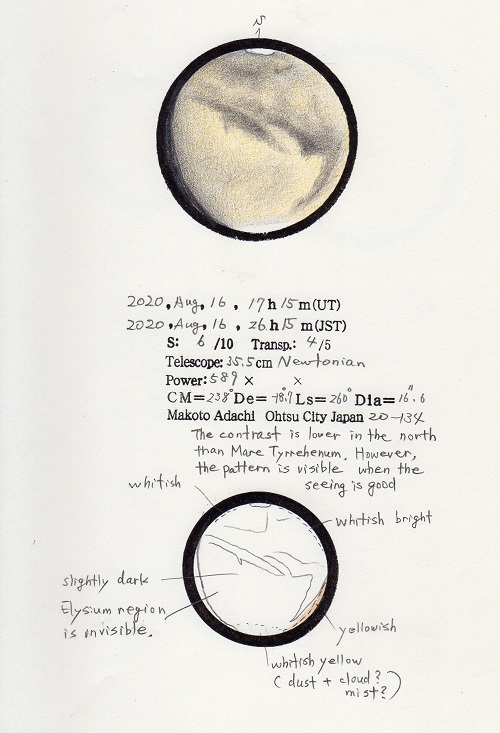 S
2020, Aug, 16, 17h 15m(UT)
2020, Aug, 16, 26h 15m(JST)
S: 6 /10 Transp.: 4/5
Telescope: 35.5cm Newtonian
Power: 589× ×
CM=238° De=-18.7° Ls=260° Dia=16.6"
Makoto Adachi Ohtsu City Japan 20-134
The contrast is lower in the north
than Mare Tyrrehenum. However,
the pattern is visible when the
seeing is good
whitish
whitish bright
slightly dark
Elysium region
is invisible.
yellowish
whitish yellow
(dust + cloud?
mist?)